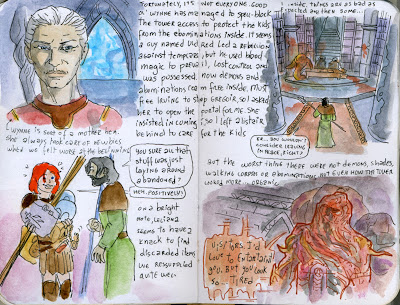 Fortunately, it's not everyone. Good
ol' Wynne has managed to spell-block
the tower access to protect the kids
from the abominations inside. It seems
a guy named Uldred led a rebellion
against templars, but he used blood
magic to prevail, lost control and
was possessed. Now demons and
abominations roam free inside. Must
free Irving to stop Gregoir, so I asked
her to open the portal for me. She
insisted in coming, so I left Alistair
behind to care for the kids
Wynne is sort of a mother hen.
She always took care of newbies
when we felt worse at the beginning
You sure all that
stuff was just
laying around
abandoned?
Heh. Positively!
On a bright
note, Leliana
seems to have a
knack to find
discarded items
We resupplied
quite well
Inside, things are as bad as
expected and then some...
Er... You wouldn't
consider leaving
in peace, right?
But the worst thing there were not demons, shades,
walking corpses or abominations, not even how the tower
looked more... organic
Visitors. I'd
love to entertain
you, but you look
so... tired